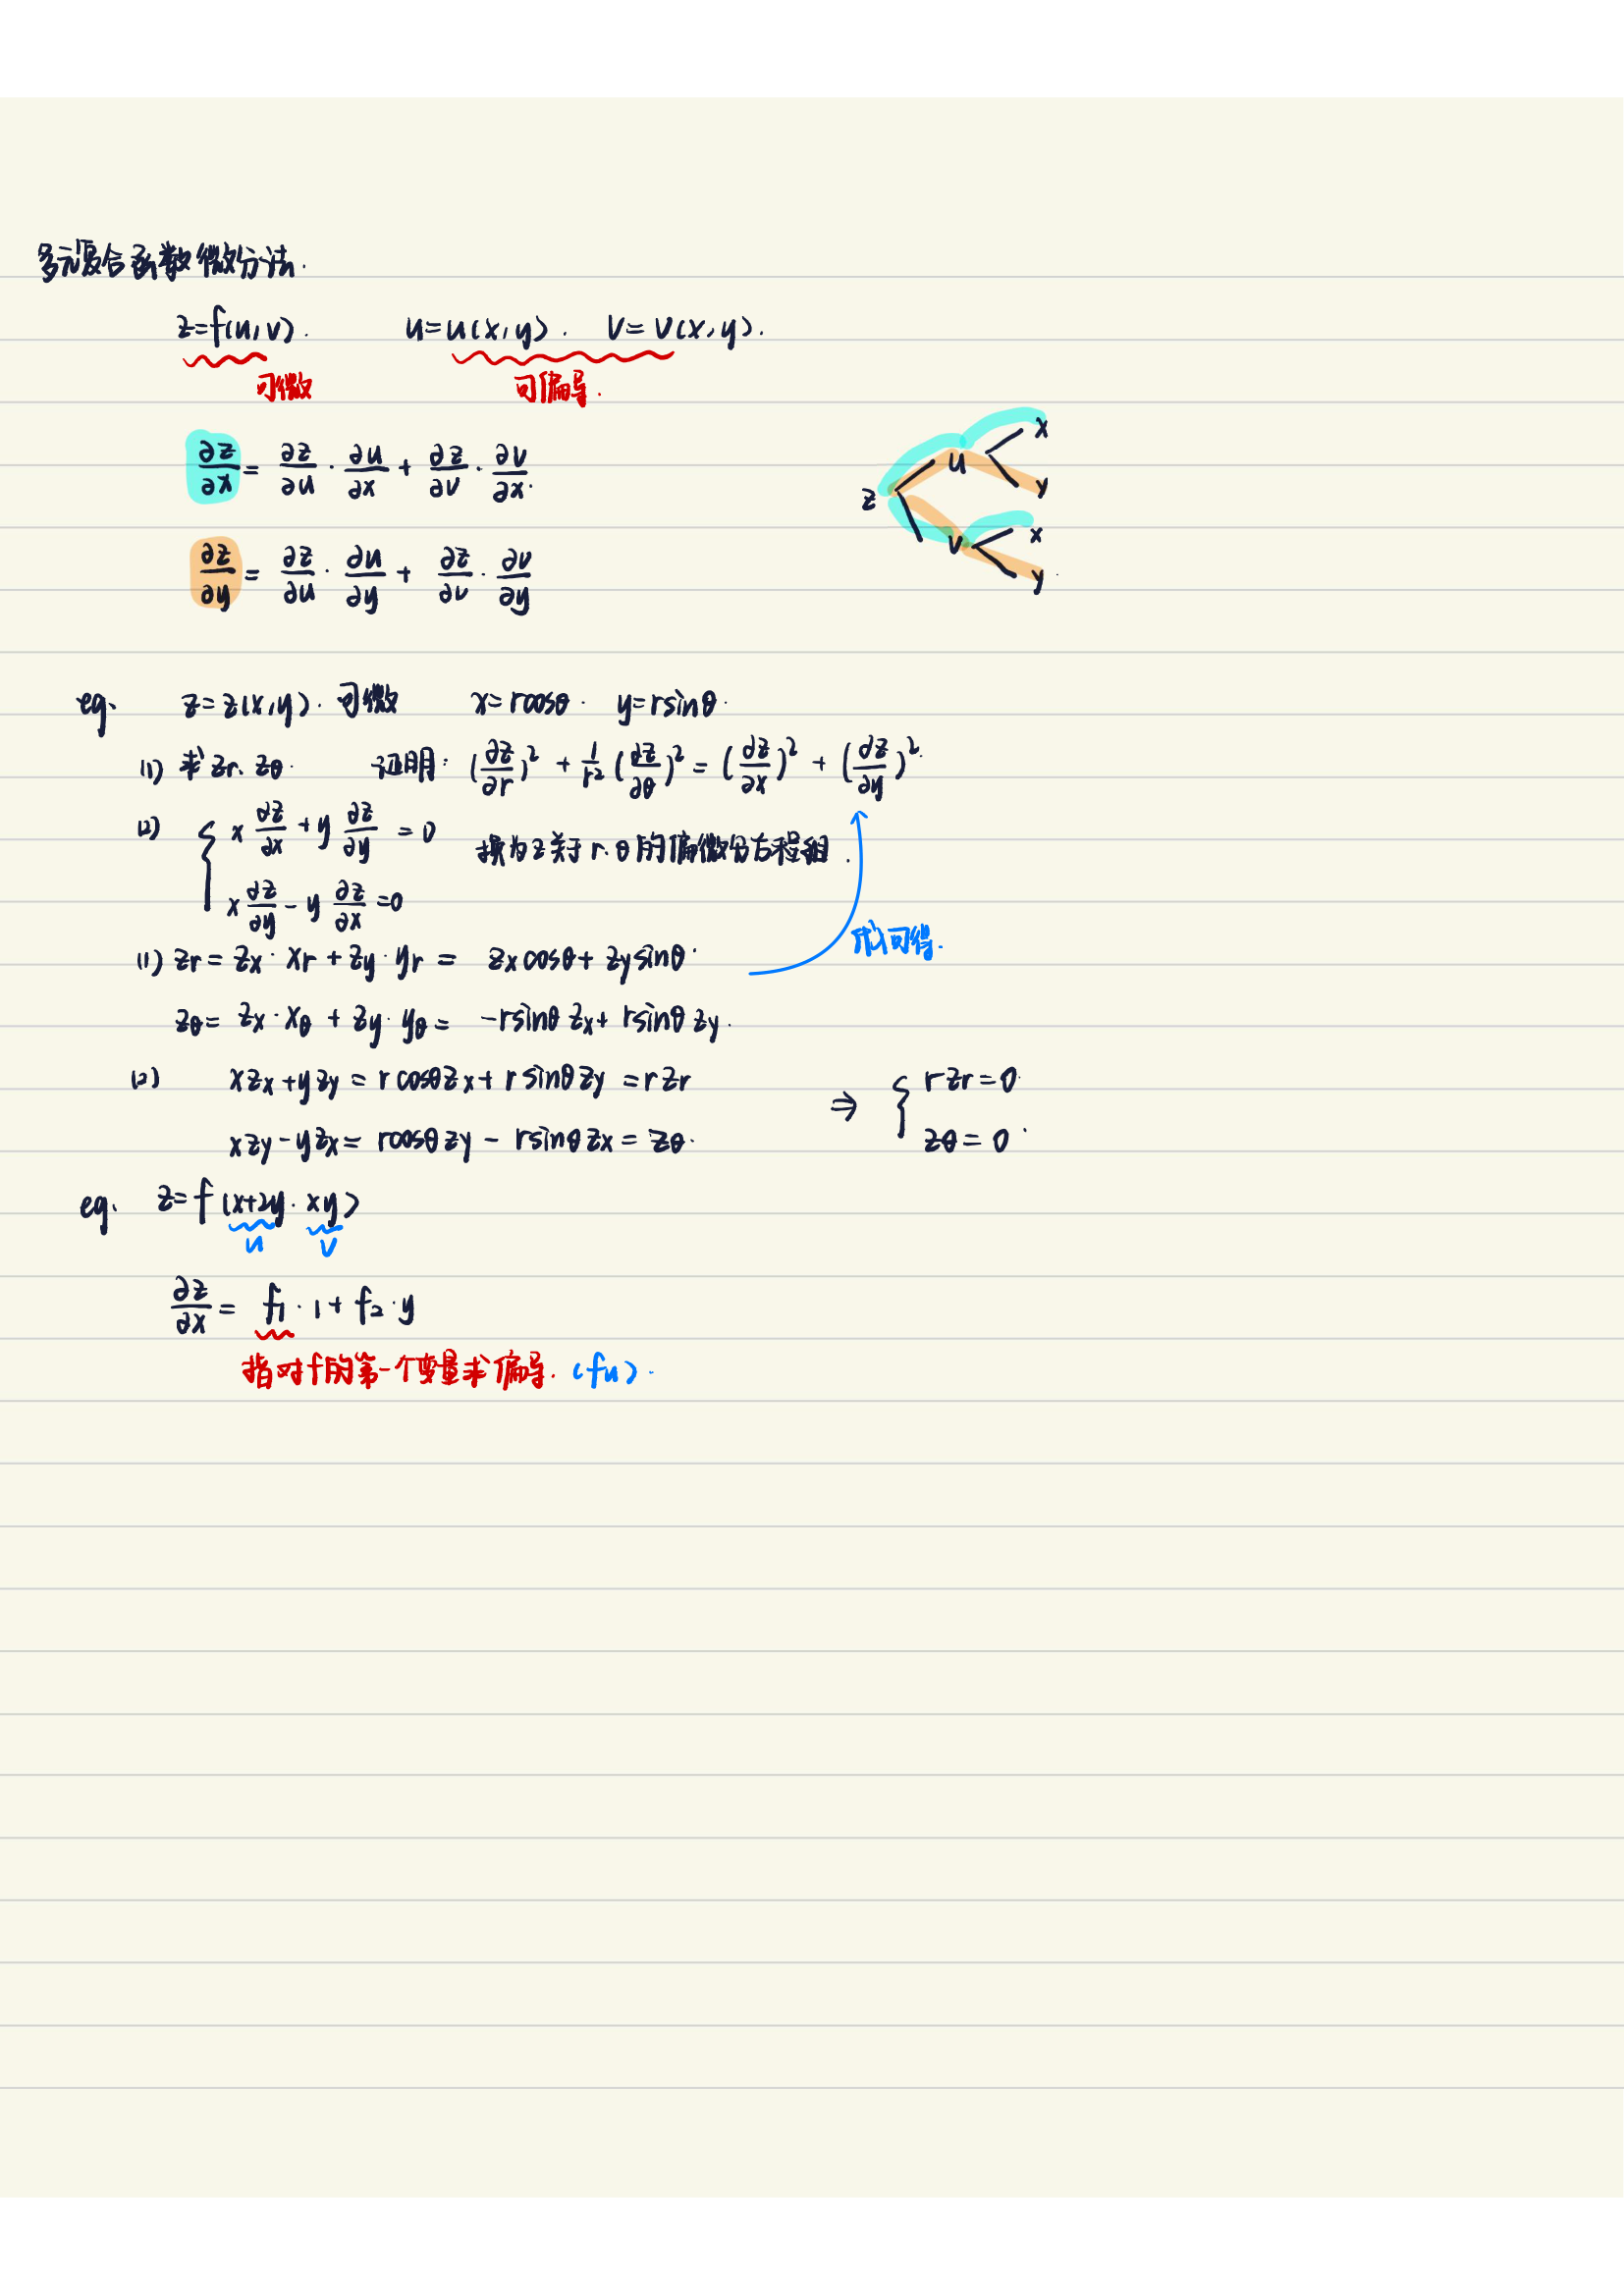 多元复合函数微分法.
z=f(u,v). u=u(x,y). v=v(x,y).
可微 可偏导.
∂z/∂x = ∂z/∂u · ∂u/∂x + ∂z/∂v · ∂v/∂x.
z u v x y x y.
∂z/∂y = ∂z/∂u · ∂u/∂y + ∂z/∂v · ∂v/∂y
eg、 z=z(x,y). 可微 x=rcosθ. y=rsinθ.
(1) 求 zr、zθ. 证明: (∂z/∂r)² + 1/r² (∂z/∂θ)² = (∂z/∂x)² + (∂z/∂y)².
(2) { x ∂z/∂x + y ∂z/∂y = 0 换为z关于r、θ的偏微分方程组.
x ∂z/∂y - y ∂z/∂x =0
代入可得.
(1) zr = zx · xr + zy · yr = zx cosθ + zy sinθ.
zθ = zx · xθ + zy · yθ = -rsinθ zx + rsinθ zy.
(2) xzx + yzy = r cosθ zx + r sinθ zy = rzr ⇒ { rzr=0.
xzy - yzx = rcosθ zy - rsinθ zx = zθ. zθ = 0.
eg、 z=f(x+2y. xy)
u v
∂z/∂x = f1 · 1 + f2 · y
指对f的第一个变量求偏导. (fu).